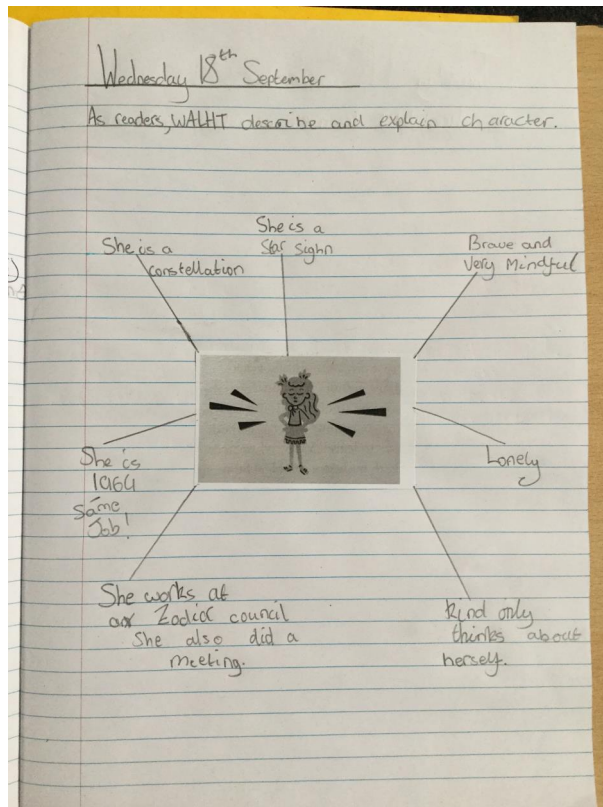 Wednesday 18th September
As readers, WALHT describe and explain character.
She is a
constellation
She is a
Star sighn
Brave and
Very Mindful
She is
1964
Same
Job!
Lonely
She works at
Zodiac council
She also did a
meeting.
kind only
thinks about
herself.